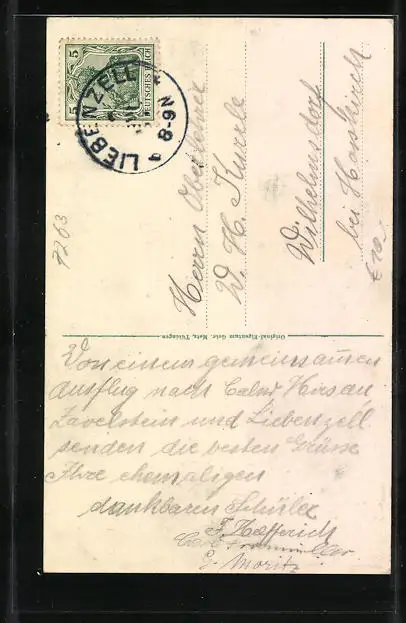 5
5
DEUTSCHES REICH
LIEBENZELL
8-9N
Herrn Oberlehrer
W. H. Kurrle
Wilhelmsdorf
bei Hosskirch
7263
Original-Eigentum Gebr. Metz, Tübingen
Von einem gemeinsamen
Ausflug nach Calw Hirsau
Zavelstein und Liebenzell
senden die besten Grüsse
Ihre ehemaligen
dankbaren Schüler
F.
G. Moritz